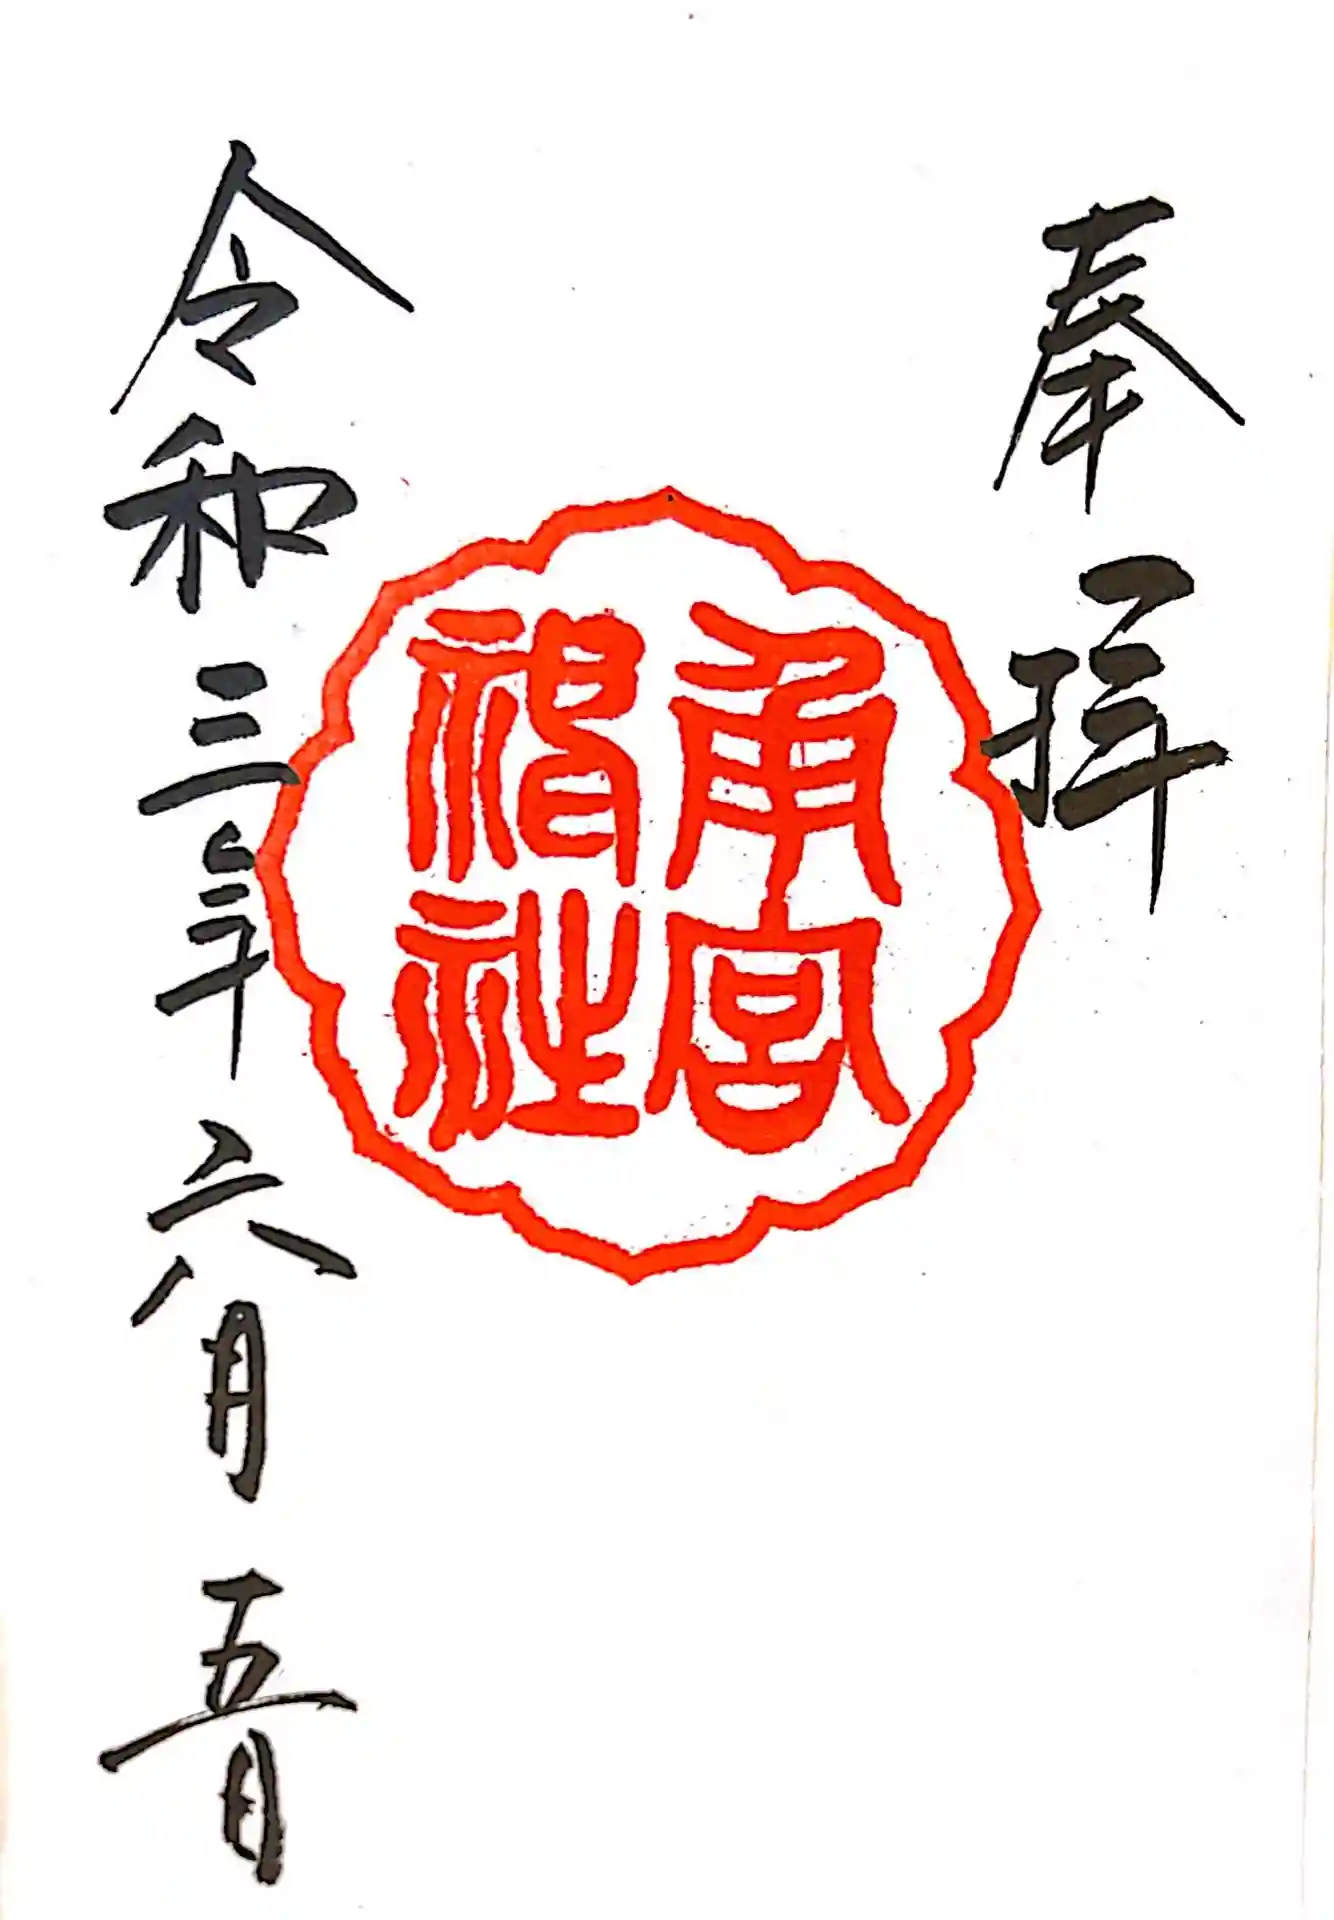 奉拝
角宮
神社
令和三年六月五日